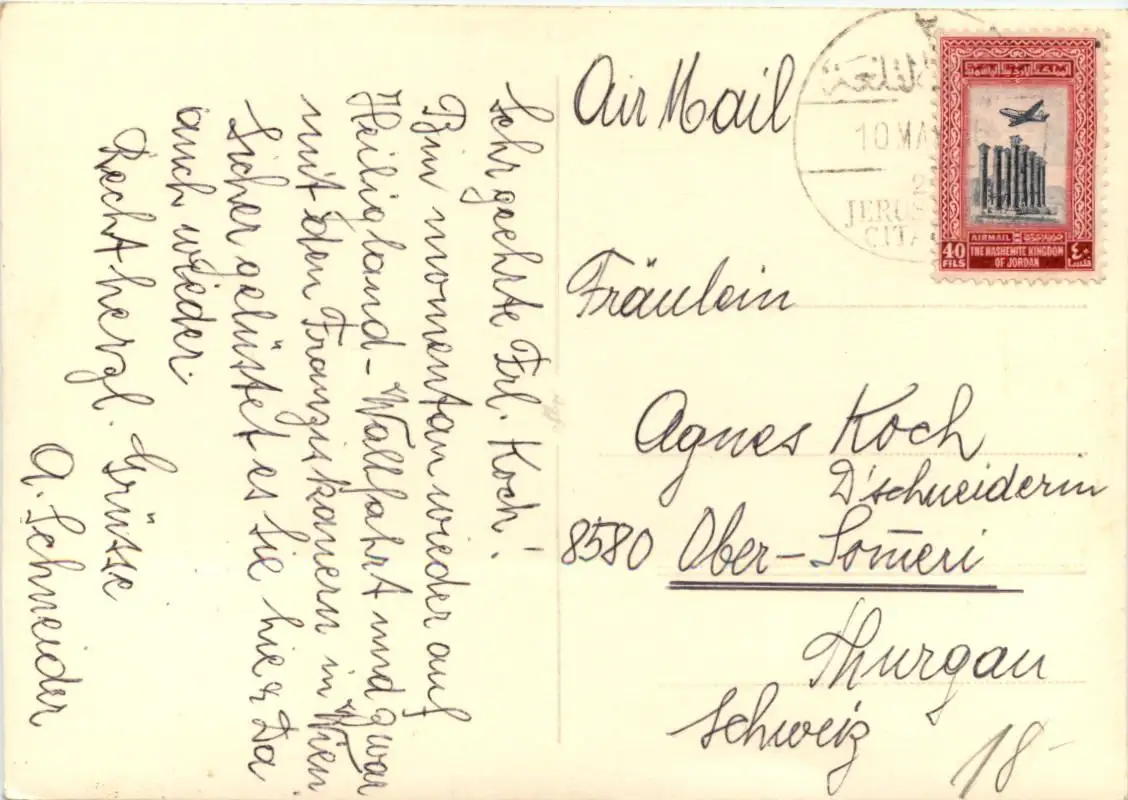 Sehr geehrte Frl. Koch!
Bin momentan wieder auf
Heiligland-Wallfahrt und zwar
mit den Franziskanern in Wien.
Sicher gelüstet es Sie hie & Da
auch wieder.
Recht herzl. Grüsse
A. Schneider
Air Mail
10 MAY
2
JERUS
CITA
AIRMAIL
40
FILS
THE HASHEMITE KINGDOM
OF JORDAN
٤٠
فلسا
Fräulein
Agnes Koch
D'schneiderin
8580 Ober-Som̄eri
Thurgau
Schweiz
18-